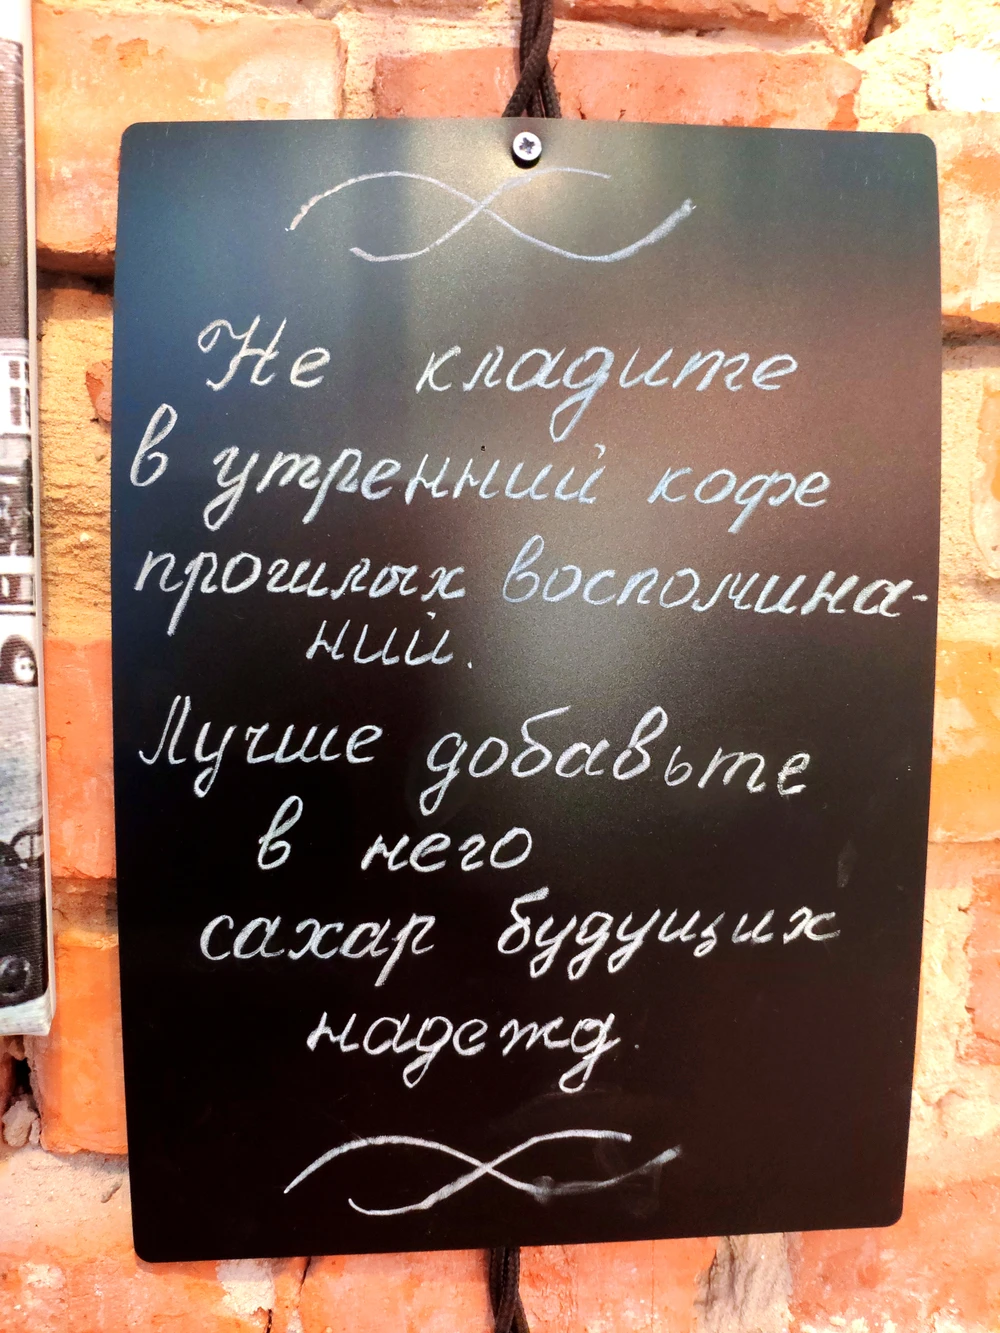 Не кладите
в утренний кофе
прошлых воспомина-
ний.
Лучше добавьте
в него
сахар будущих
надежд.